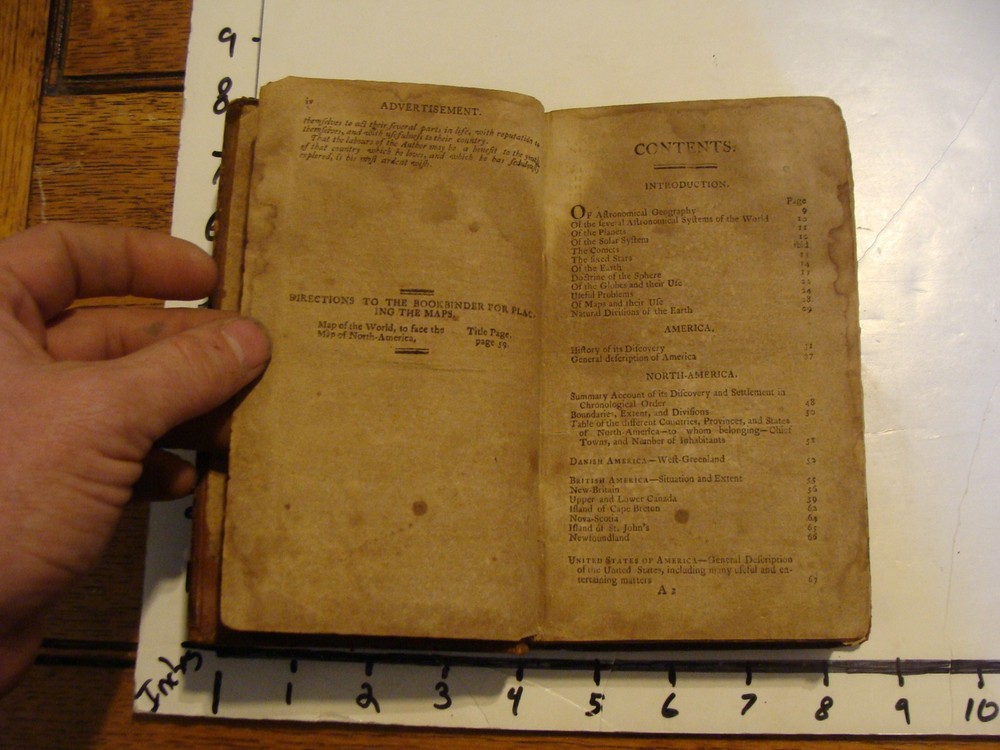 9
8
7
6
iv
ADVERTISEMENT.
themselves to act their several parts in life, with reputation to
themselves, and with usefulness to their country.
That the labours of the Author may be a benefit to the youth
of that country which he loves, and which he has sedulously
explored, is his most ardent wish.
DIRECTIONS TO THE BOOKBINDER FOR PLAC-
ING THE MAPS.
Map of the World, to face the Title Page.
Map of North-America, page 59.
CONTENTS.
INTRODUCTION.
Page
OF Astronomical Geography 9
Of the several Astronomical Systems of the World 10
Of the Planets 11
Of the Solar System 12
The Comets ibid
The fixed Stars 13
Of the Earth 14
Doctrine of the Sphere 17
Of the Globes and their Use
Useful Problems 24
Of Maps and their Use 28
Natural Divisions of the Earth 29
AMERICA.
History of its Discovery 31
General description of America 37
NORTH-AMERICA.
Summary Account of its Discovery and Settlement in
Chronological Order 48
Boundaries, Extent, and Divisions 50
Table of the different Countries, Provinces, and States
of North-America—to whom belonging—Chief
Towns, and Number of Inhabitants 51
DANISH AMERICA—West-Greenland 52
BRITISH AMERICA—Situation and Extent 55
New-Britain 56
Upper and Lower Canada 59
Island of Cape Breton 62
Nova-Scotia 64
Island of St. John's 65
Newfoundland 66
UNITED STATES OF AMERICA—General Description
of the United States, including many useful and en-
tertaining matters 67
A 2
Inches
1 2 3 4 5 6 7 8 9 10